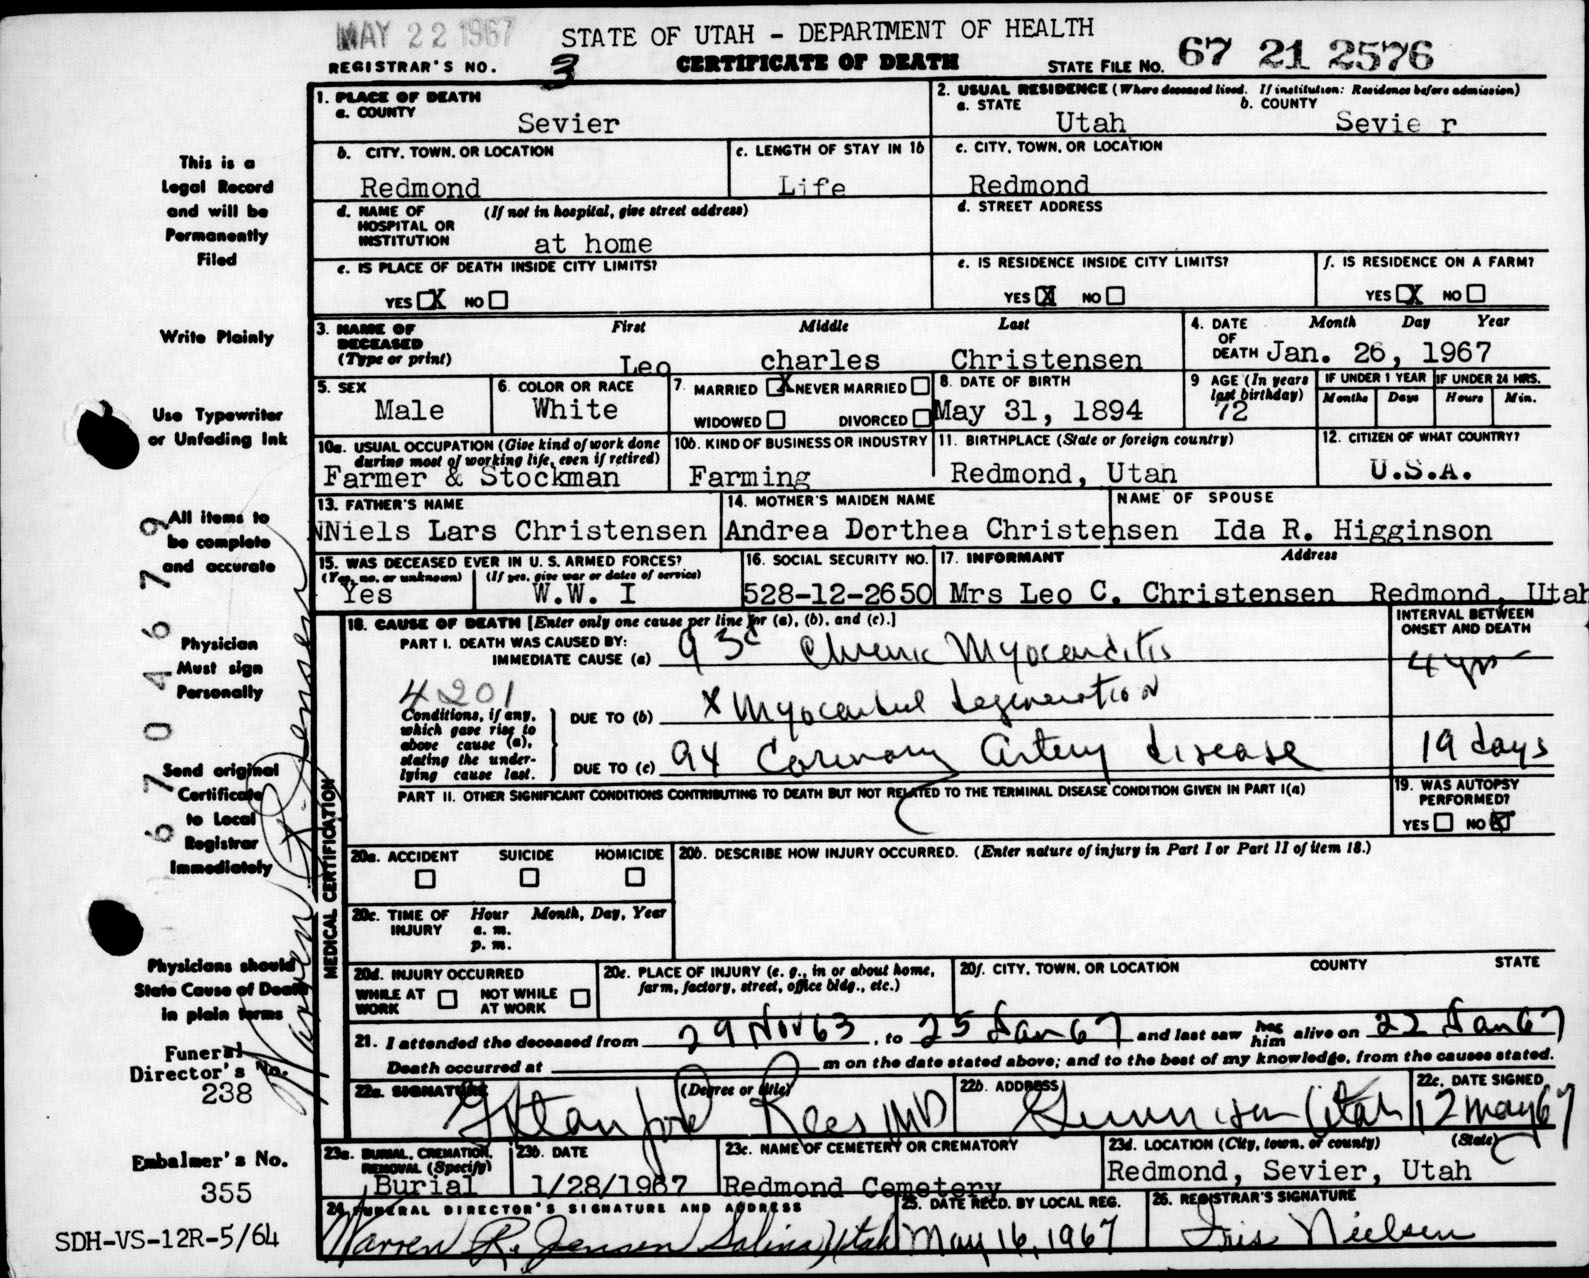 MAY 22 1967
STATE OF UTAH - DEPARTMENT OF HEALTH
REGISTRAR'S NO. 3
CERTIFICATE OF DEATH
STATE FILE NO. 67 21 2576
1. PLACE OF DEATH
a. COUNTY
Sevier
2. USUAL RESIDENCE (Where deceased lived. If institution: Residence before admission)
a. STATE
Utah
b. COUNTY
Sevie r
b. CITY, TOWN, OR LOCATION
Redmond
c. LENGTH OF STAY IN 1b
Life
c. CITY, TOWN, OR LOCATION
Redmond
d. NAME OF HOSPITAL OR INSTITUTION
(If not in hospital, give street address)
at home
d. STREET ADDRESS
e. IS PLACE OF DEATH INSIDE CITY LIMITS?
YES X NO
e. IS RESIDENCE INSIDE CITY LIMITS?
YES X NO
f. IS RESIDENCE ON A FARM?
YES X NO
3. NAME OF DECEASED
(Type or print)
First Middle Last
Leo charles Christensen
4. DATE OF DEATH
Month Day Year
Jan. 26, 1967
5. SEX
Male
6. COLOR OR RACE
White
7. MARRIED X NEVER MARRIED
WIDOWED DIVORCED
8. DATE OF BIRTH
May 31, 1894
9 AGE (In years last birthday)
72
IF UNDER 1 YEAR
Months Days
IF UNDER 24 HRS.
Hours Min.
10a. USUAL OCCUPATION (Give kind of work done during most of working life, even if retired)
Farmer & Stockman
10b. KIND OF BUSINESS OR INDUSTRY
Farming
11. BIRTHPLACE (State or foreign country)
Redmond, Utah
12. CITIZEN OF WHAT COUNTRY?
U.S.A.
13. FATHER'S NAME
NNiels Lars Christensen
14. MOTHER'S MAIDEN NAME
Andrea Dorthea Christensen
NAME OF SPOUSE
Ida R. Higginson
15. WAS DECEASED EVER IN U. S. ARMED FORCES?
(Yes, no, or unknown) (If yes, give war or dates of service)
Yes W.W. I
16. SOCIAL SECURITY NO.
528-12-2650
17. INFORMANT Address
Mrs Leo C. Christensen Redmond, Utah
MEDICAL CERTIFICATION
18. CAUSE OF DEATH [Enter only one cause per line for (a), (b), and (c).]
INTERVAL BETWEEN ONSET AND DEATH
PART I. DEATH WAS CAUSED BY:
IMMEDIATE CAUSE (a) 93c Chronic Myocarditis
4 yrs
4201
Conditions, if any, which gave rise to above cause (a), stating the underlying cause last.
DUE TO (b) X Myocardial degeneration
DUE TO (c) 94 Coronary Artery disease
19 days
PART II. OTHER SIGNIFICANT CONDITIONS CONTRIBUTING TO DEATH BUT NOT RELATED TO THE TERMINAL DISEASE CONDITION GIVEN IN PART I(a)
19. WAS AUTOPSY PERFORMED?
YES NO X
20a. ACCIDENT SUICIDE HOMICIDE
20b. DESCRIBE HOW INJURY OCCURRED. (Enter nature of injury in Part I or Part II of item 18.)
20c. TIME OF INJURY
Hour Month, Day, Year
a. m.
p. m.
20d. INJURY OCCURRED
WHILE AT WORK NOT WHILE AT WORK
20e. PLACE OF INJURY (e. g., in or about home, farm, factory, street, office bldg., etc.)
20f. CITY, TOWN, OR LOCATION COUNTY STATE
21. I attended the deceased from 29 Nov 63, to 25 Jan 67 and last saw her him alive on 22 Jan 67
Death occurred at m on the date stated above; and to the best of my knowledge, from the causes stated.
22a. SIGNATURE (Degree or title)
G Stanford Rees MD
22b. ADDRESS
Gunnison Utah
22c. DATE SIGNED
12 May 67
23a. BURIAL, CREMATION, REMOVAL (Specify)
Burial
23b. DATE
1/28/1967
23c. NAME OF CEMETERY OR CREMATORY
Redmond Cemetery
23d. LOCATION (City, town, or county) (State)
Redmond, Sevier, Utah
24. FUNERAL DIRECTOR'S SIGNATURE AND ADDRESS
Warren R. Jensen Salina, Utah
25. DATE RECD. BY LOCAL REG.
May 16, 1967
26. REGISTRAR'S SIGNATURE
Iris Nielsen
This is a
Legal Record
and will be
Permanently
Filed
Write Plainly
Use Typewriter
or Unfading Ink
All items to
be complete
and accurate
Physician
Must sign
Personally
Send original
Certificate
to Local
Registrar
Immediately
Physicians should
State Cause of Death
in plain terms
Funeral
Director's No.
238
Embalmer's No.
355
SDH-VS-12R-5/64
6704679
Warren R. Jensen